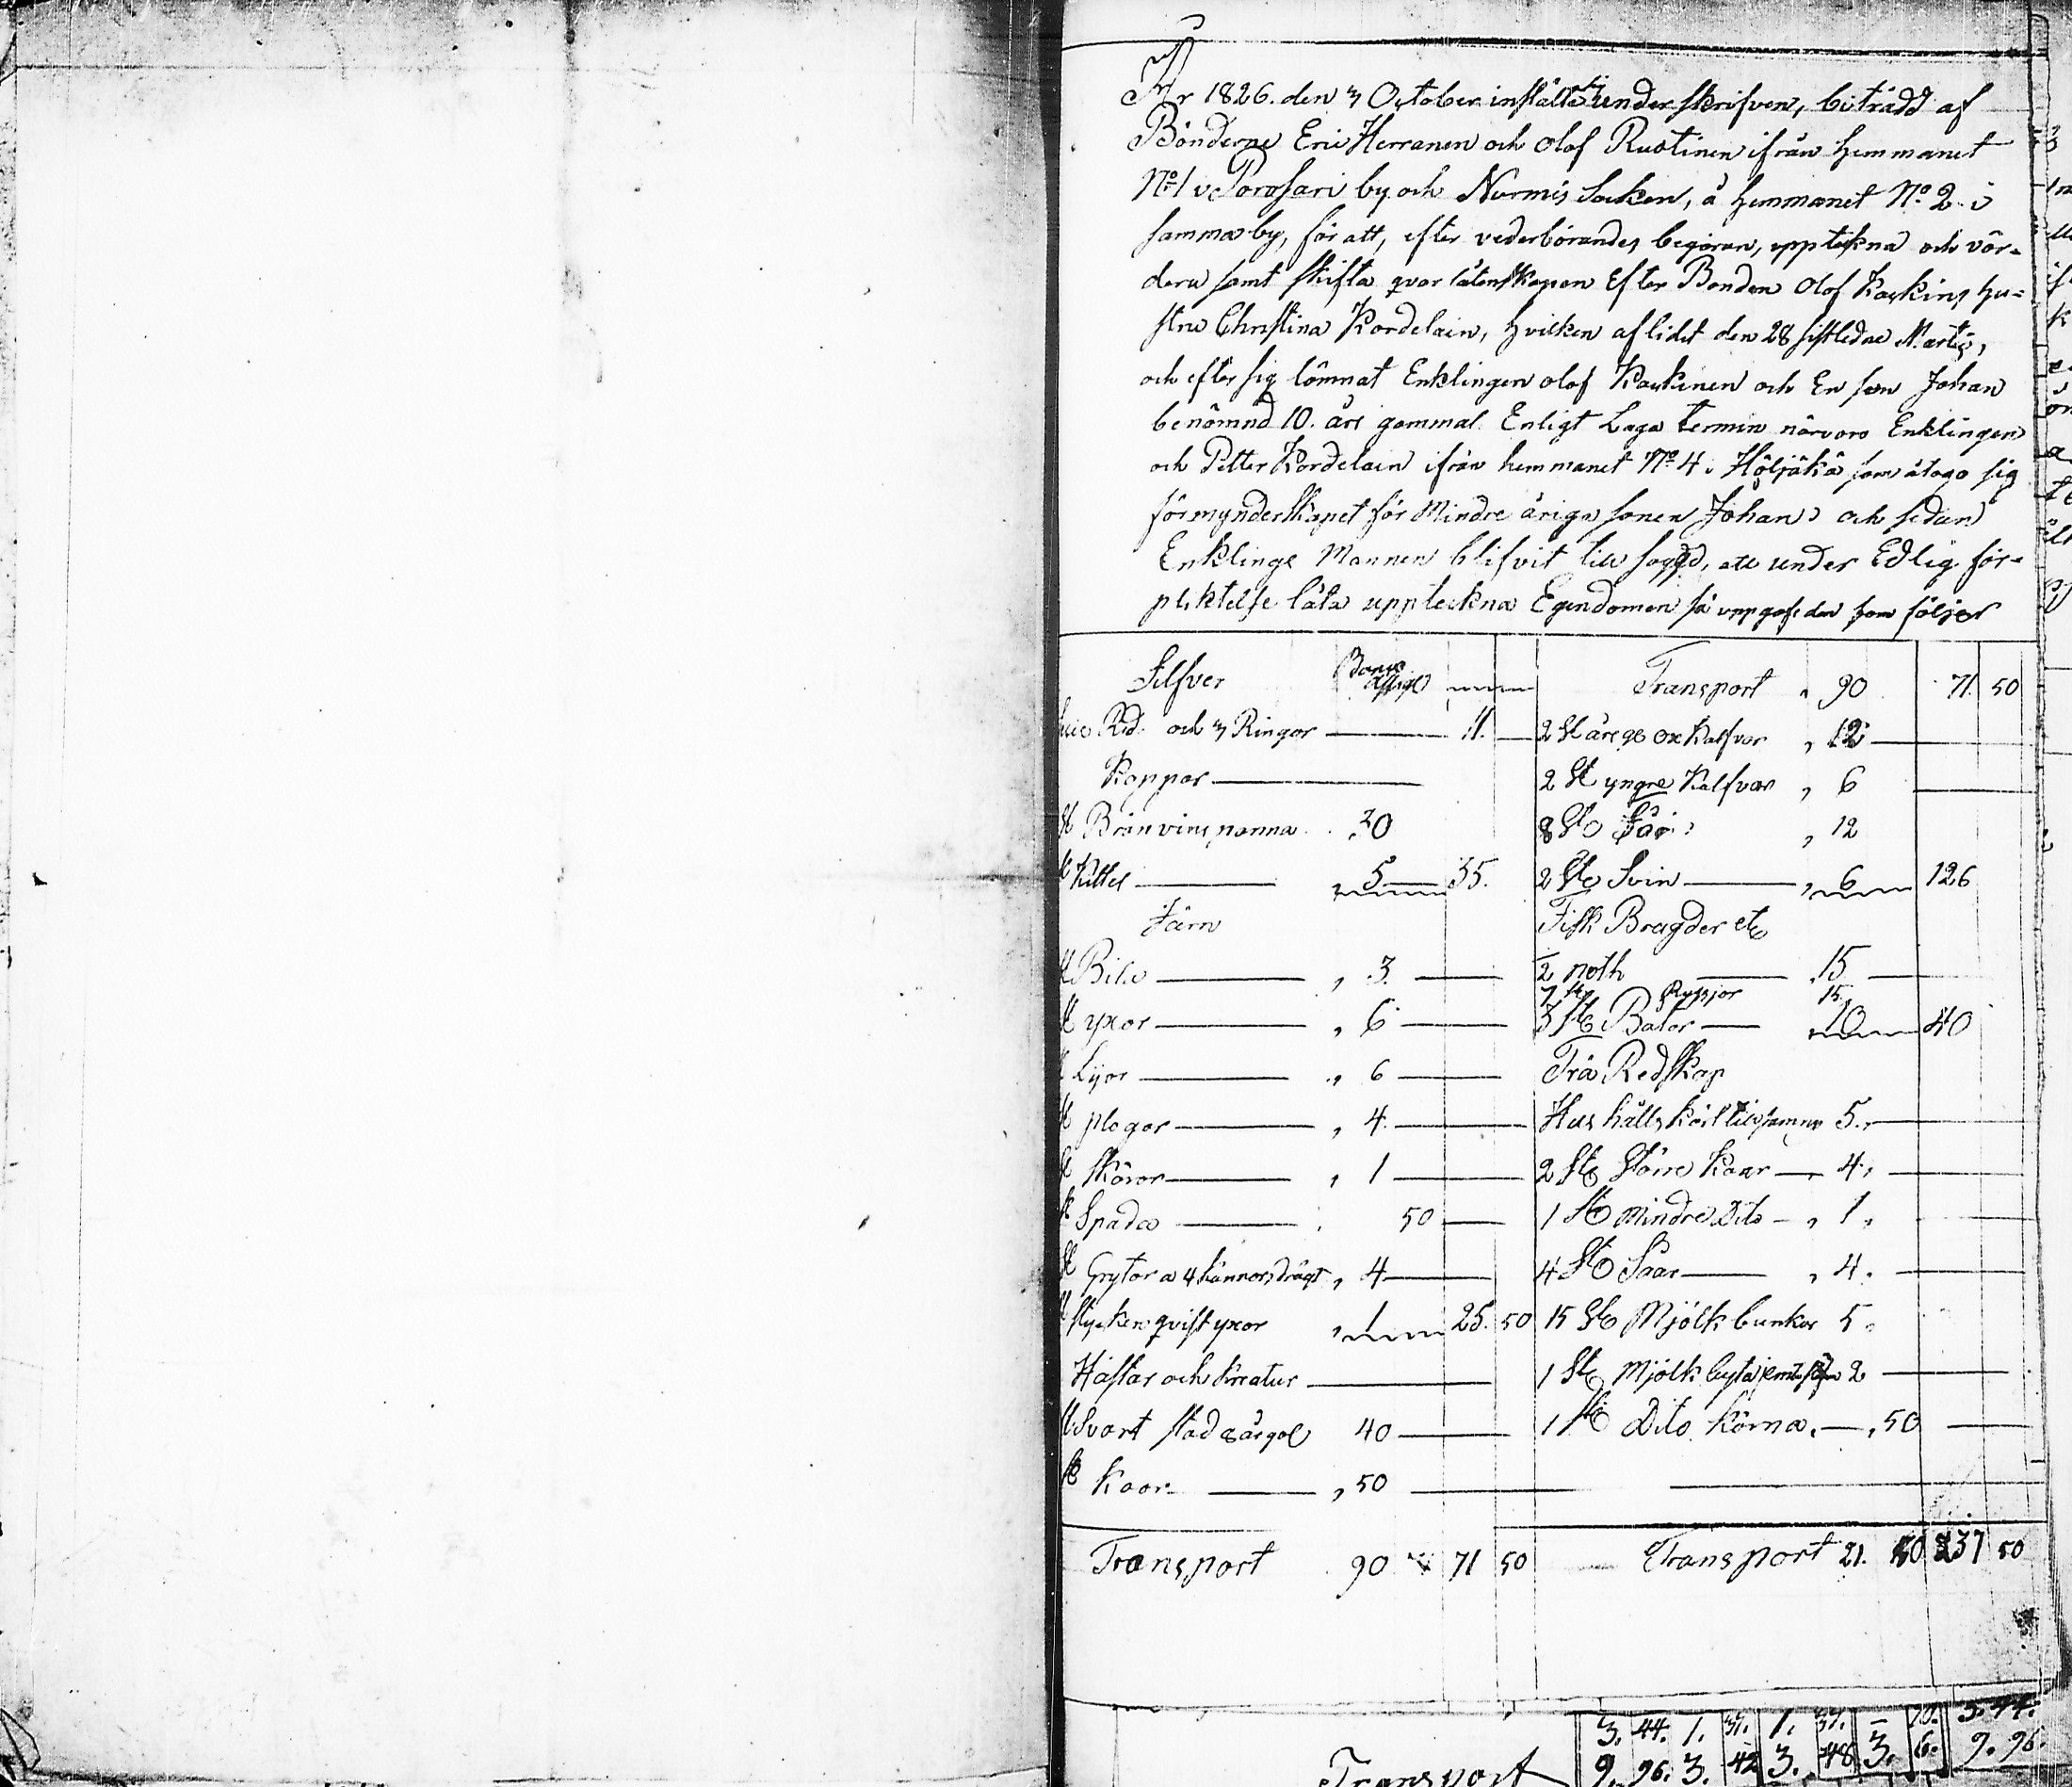 År 1826. den 3 October inställte sig underskrifven, biträdd af
Bönderne Eric Herranen och Olof Ruotinen ifrån Hemmanet
No 1 i Porosari by och Nurmis Socken, å hemmanet No 2 i
samma by, för att, efter vederbörandes begäran, uppteckna och vär-
dera samt skifta qvarlåtenskapen Efter Bonden Olof Kaskins hu-
stru Christina Kordelain, hvilken aflidit den 28 sistledne Martii,
och efter sig lämnat Enklingen Olof Kaskinen och En son Johan
benämnd 10. års gammal. Enligt Laga termin närvoro Enklingen
och Petter Kordelain ifrån hemmanet No 4 i Höljäkä som åtogo sig
förmynderskapet för Minderåriga sonen Johan, och sedan
Enklinge Mannen blifvit tillsaggd, att under Edlig för-
pliktelse låta uppteckna Egendomen så uppgafs den som följer
Silfver Banco Transport 90 71. 50
och 3 Ringor 11. 2 St årige oxkalfvar 12
Koppar 2 St yngre Kalfvar 6
St Bränvins panna 30 8 St Får 12
Kittel 5 35. 2 St Svin 6 126
Järn Fisk Bragder etc
St Bila 3 2 noth 15
7 St Ryssjor 15
St yxor 6 3 St Båtar 10 40
Lijor 6 Trä Redskap
St plogar 4 Hushålls kärl tillsamman 5.
St Skäror 1 2 St Större Kaar 4
St Spada 50 1 St Mindre Dito 1
St Grytor a 4 kannors drägt 4 4 St Såar 4.
stycken qvist yxor 1 25. 50 15 St Mjölk bunkar 5
Hästar och Kreatur 1 St Mjölk bytta 2
Svart stod 8 årgl 40 1 St Dito Kärna 50
St Koor 50
Transport 90 71 50 Transport 21. 50 237 50
3. 44. 1. 37. 1. 37. – 10. 3. 44.
Transport 9. 96. 3. 42 3. 48 3. 6. 9. 96.